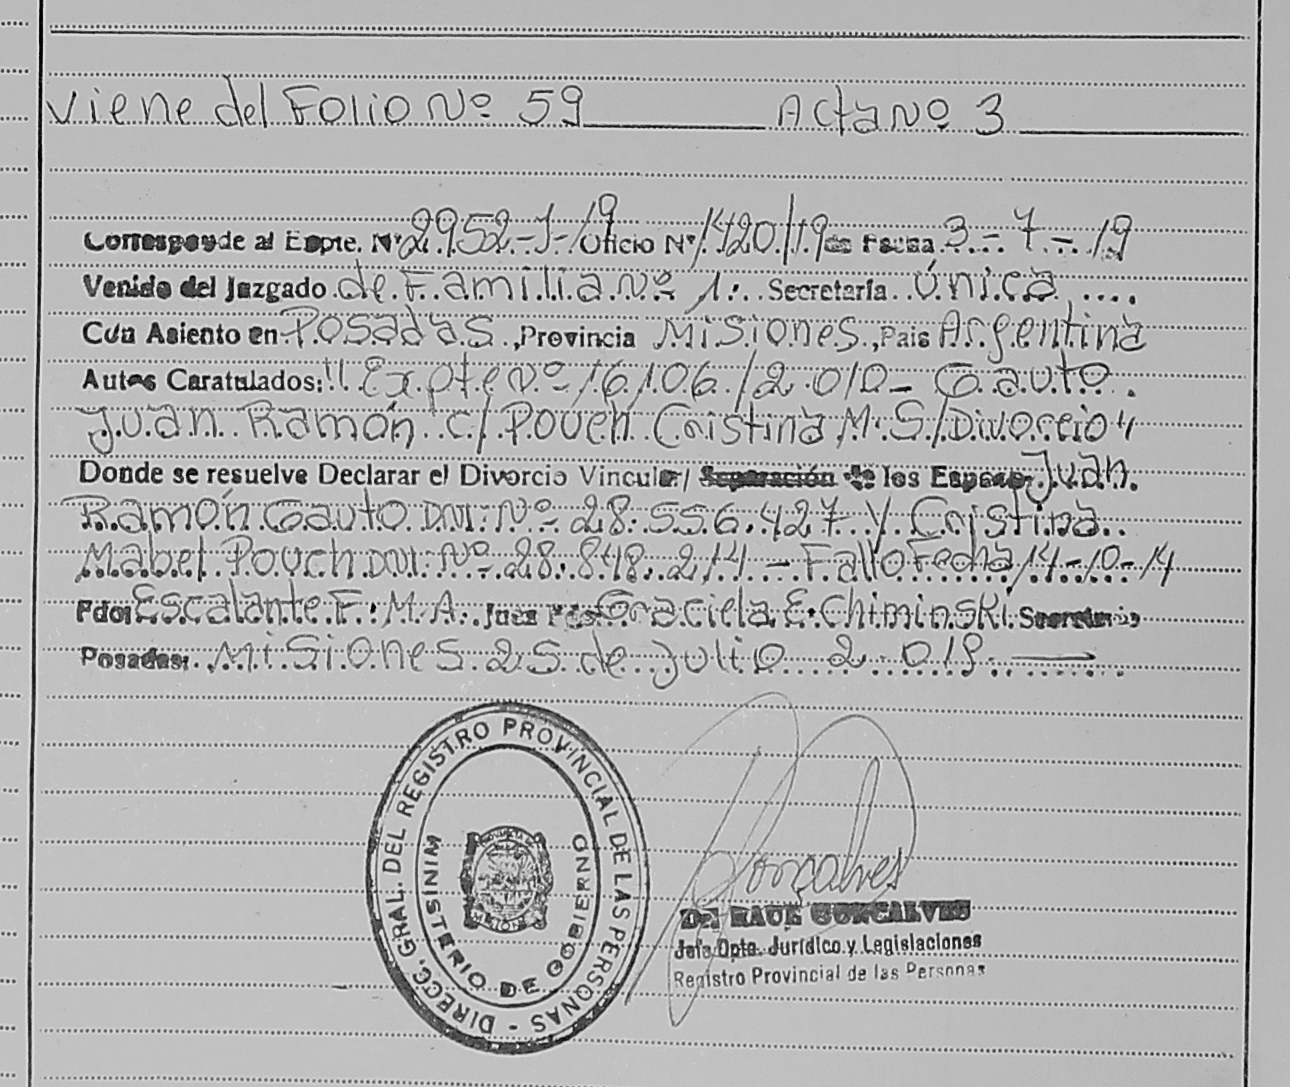 Viene del Folio Nº 59 Acta Nº 3
Corresponde al Expte. Nº 2952-J-19 Oficio Nº 1420/19 de Fecha 3-7-19
Venido del Juzgado de Familia Nº 1. Secretaría Única
Con Asiento en Posadas, Provincia Misiones, País Argentina
Autos Caratulados: "Expte Nº 16106/2010- Gauto
Juan Ramón c/ Pouch Cristina M. S/Divorcio"
Donde se resuelve Declarar el Divorcio Vincular/ Separación de los Esposos Juan
Ramón Gauto DNI: Nº 28.556.427 y Cristina
Mabel Pouch DNI: Nº 28.848.214 - Fallo Fecha 14-10-14
Fdo: Escalante F. M. A. Juez Graciela E. Chiminski Secretario
Posadas: Misiones 25 de Julio 2.019
DIRECC. GRAL. DEL REGISTRO PROVINCIAL DE LAS PERSONAS -
MINISTERIO DE GOBIERNO
Gonçalves
Dr. RAUL GONCALVES
Jefe Dpto. Jurídico y Legislaciones
Registro Provincial de las Personas